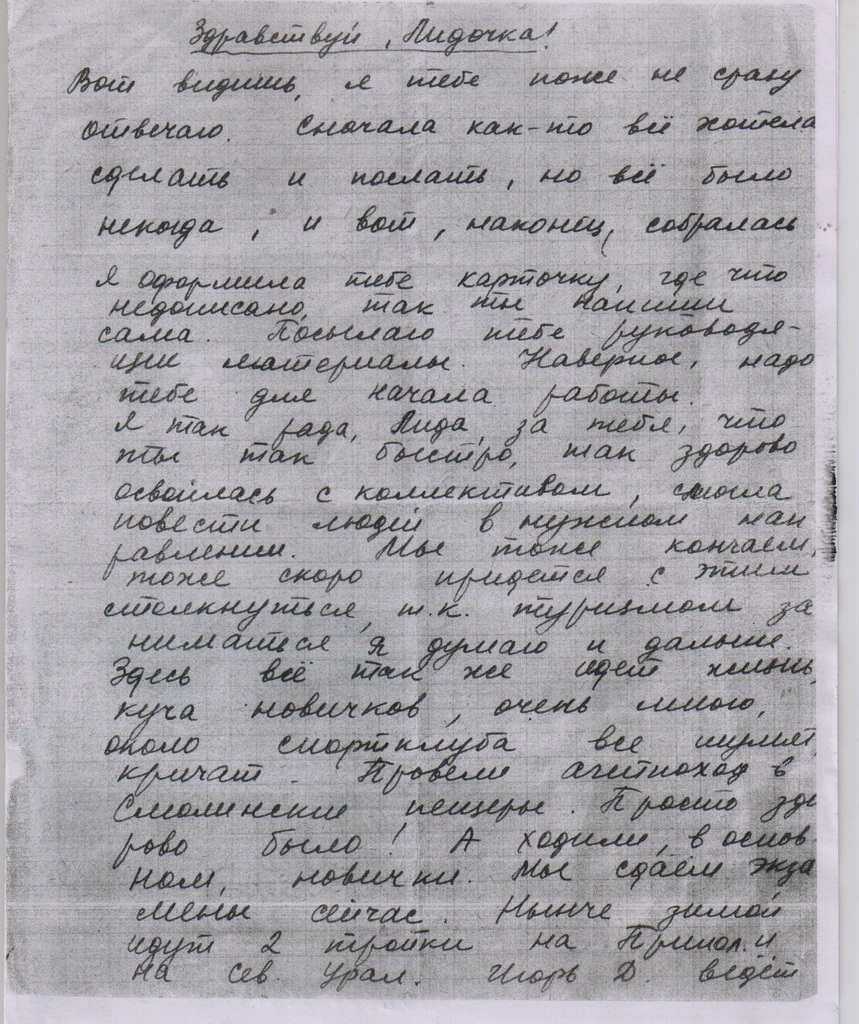 Здравствуй, Лидочка!
Вот видишь, я тебе тоже не сразу
отвечаю. Сначала как-то всё хотела
сделать и послать, но всё было
некогда, и вот, наконец, собралась
Я оформила тебе карточку, где что
недописано, так ты напиши
сама. Посылаю тебе руководя-
щие материалы. Наверное, надо
тебе для начала работы.
Я так рада, Лида, за тебя, что
ты так быстро, так здорово
освоилась с коллективом, смогла
повести людей в нужном нап
равлении. Мы тоже кончаем,
тоже скоро придется с этим
столкнуться, т.к. туризмом за
ниматься я думаю и дальше.
Здесь всё так же идет жизнь,
куча новичков, очень много,
около спортклуба все шумят
кричат. Провели агитпоход в
Смолинские пещеры. Просто здо
рово было! А ходили, в основ
ном, новички. Мы сдаём экза
мены сейчас. Нынче зимой
идут 2 тройки на Припол. и
на Сев. Урал. Игорь Д. ведёт